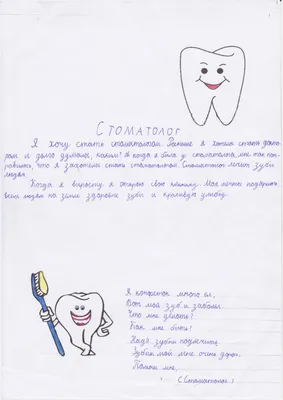 Стоматолог
Я хочу стать стоматологом. Раньше я хотела стать докто-
ром и долго думала, каким? А когда я была у стоматолога, мне так пон-
равилось, что я захотела стать стоматологом. Стоматолог лечит зубы
людям.
Когда я вырасту я открою свою клинику. Моя мечта подарить
всем людям на земле здоровые зубы и красивую улыбку.
Я конфеток много ел,
Вот мой зуб и заболел.
Что мне делать?
Как мне быть?
Надо зубик подлечить.
Зубик мой мне очень дорог.
Помоги мне,
Стоматолог!